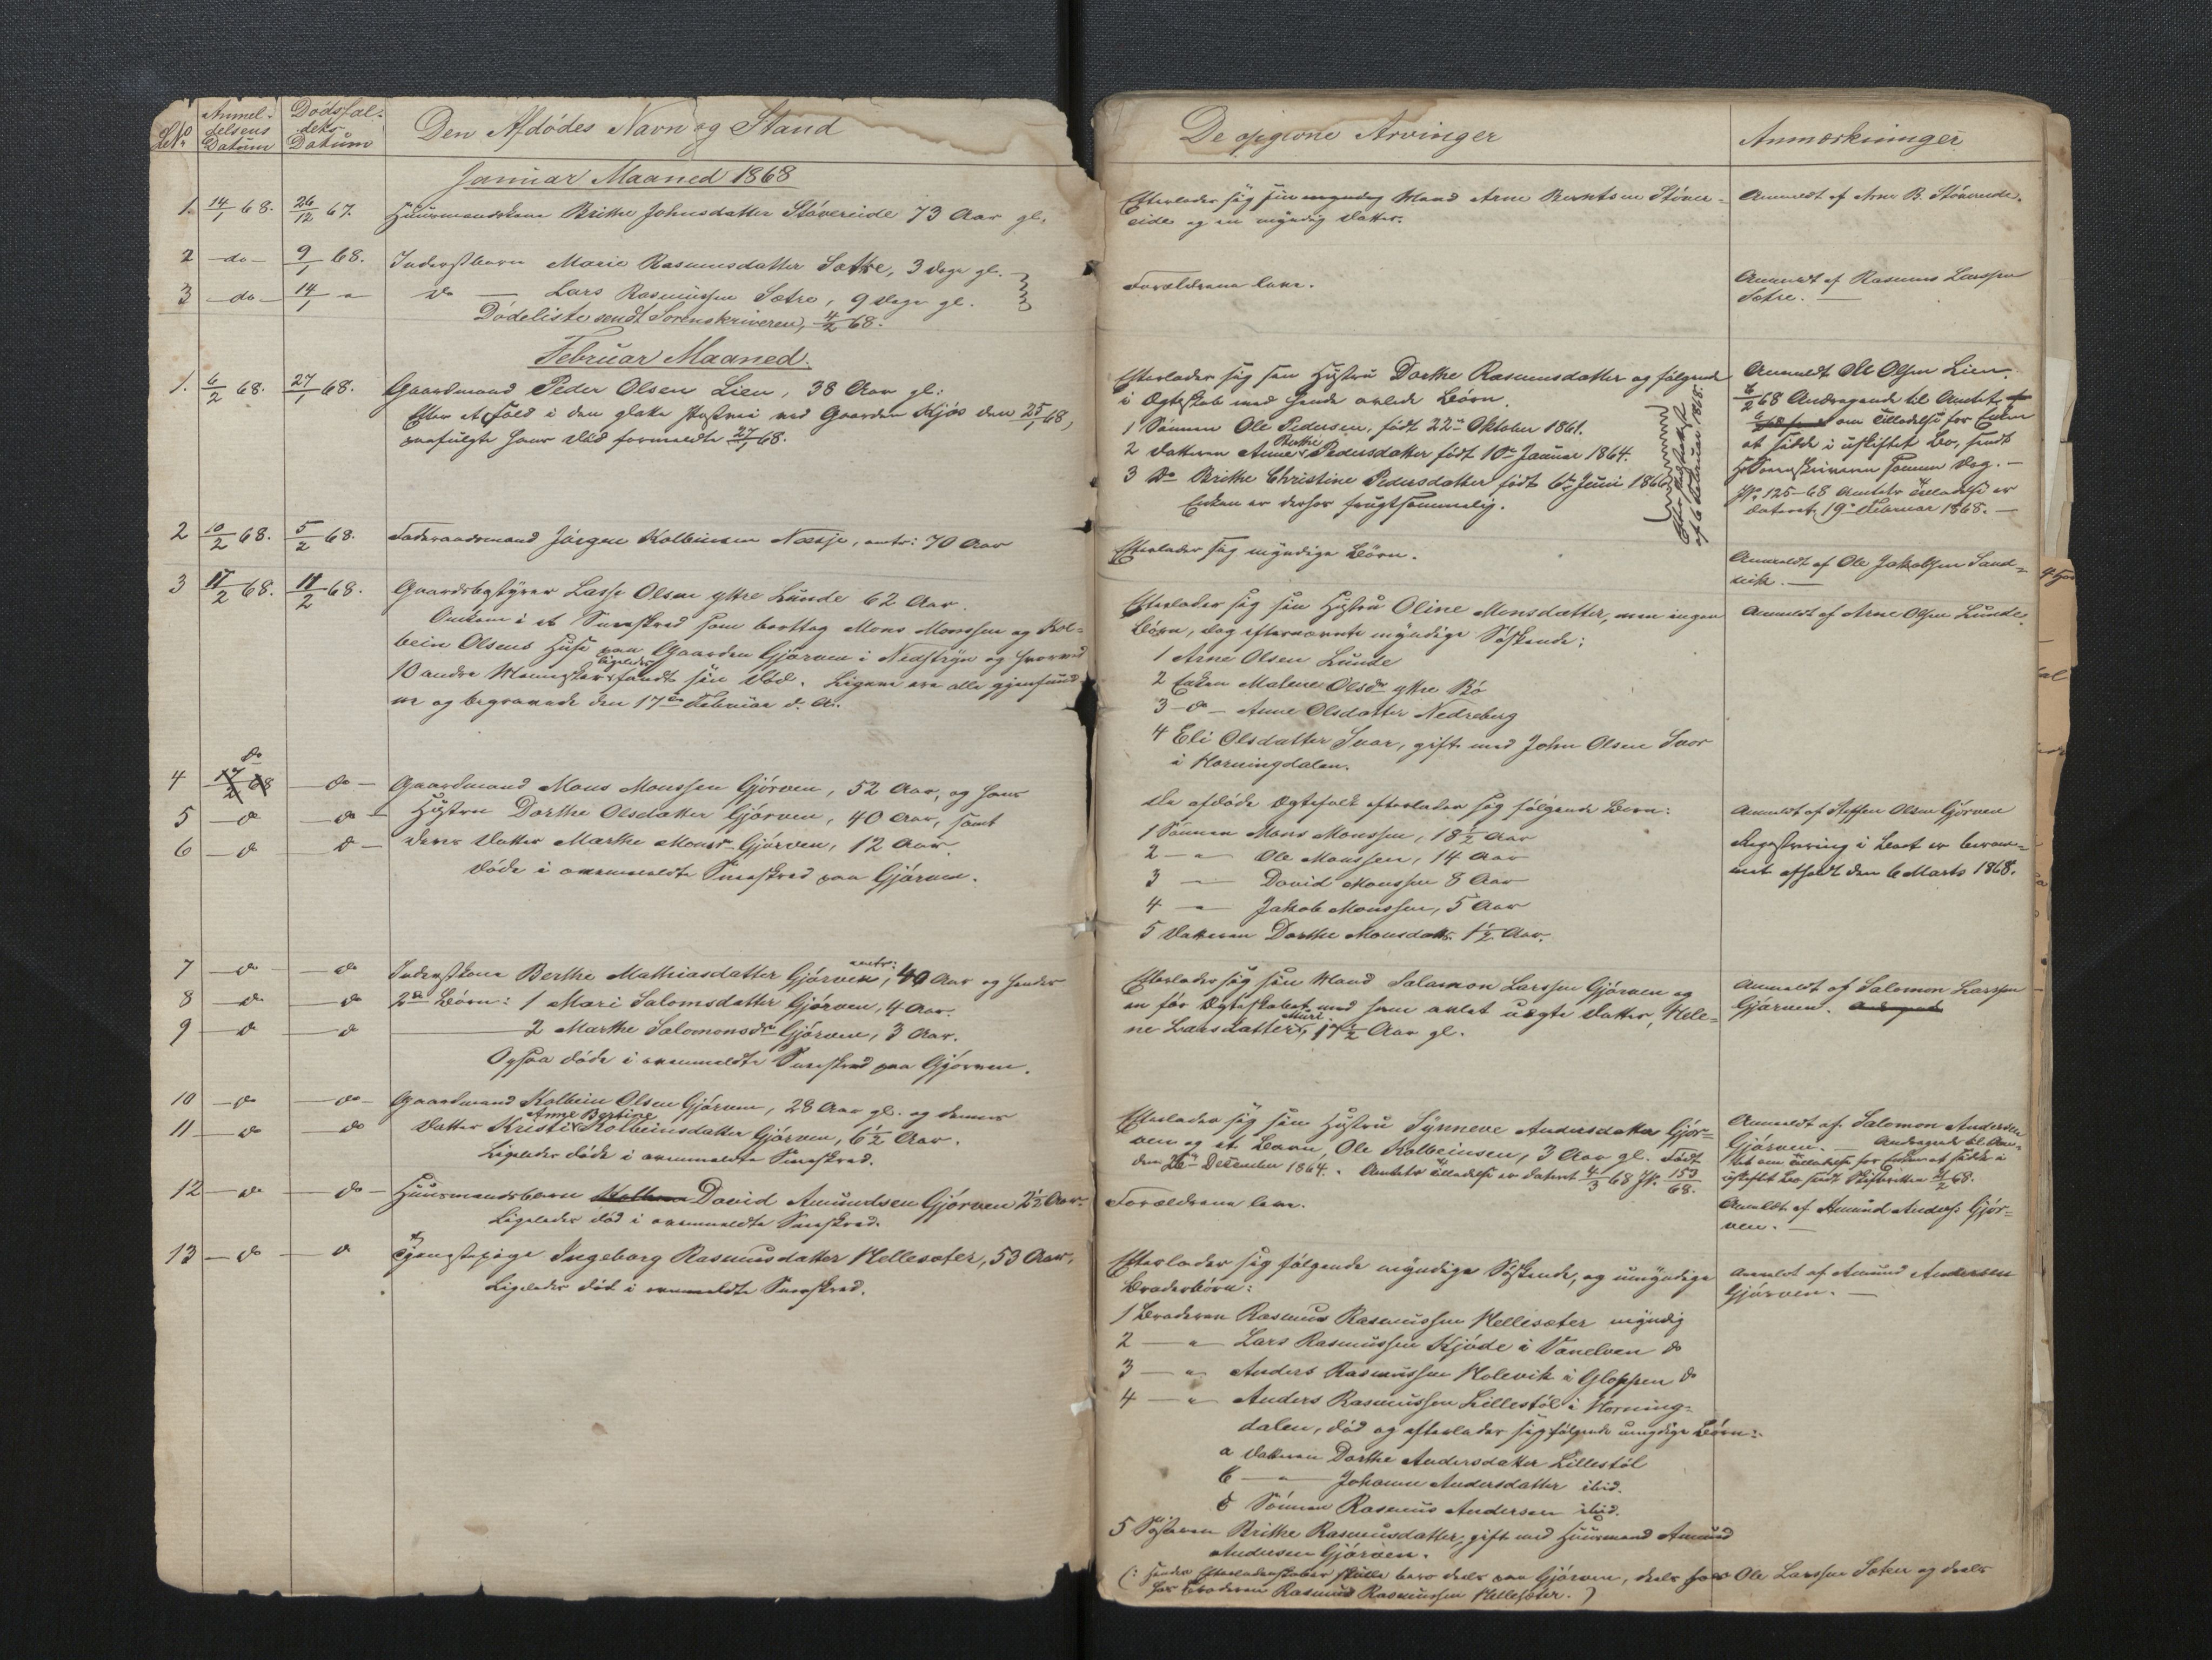 LNo
Anmel-
delsens
Datum
Dødsfal-
dets
Datum
Den Afdødes Navn og Stand
Januar Maaned 1868
1. 14/1 68. 26/12 67. Huusmandskone Brithe Johnsdatter Støvereide 73 Aar gl.
2 -do- 9/1 68. Inderstbarn Marie Rasmusdatter Sætre, 3 Dage gl.
3 -do- 14/1 " Do — Lars Rasmussen Sætre, 9 Dage gl.
Dødeliste sendt Sorenskriveren, 4/2 68.
Februar Maaned.
1. 6/2 68. 27/1 68. Gaardmand Peder Olsen Lien, 38 Aar gl.
Efter et Fald i den glatte ved Gaarden Kjøs den 25/1 68,
paafulgte hans Død formeldte 27/1 68.
2 10/2 68. 5/2 68. Føderaadsmand Jørgen Kolbeinsen Næssje, antr: 70 Aar
3 17/2 68. 11/2 68. Gaardbestyrer Lasse Olsen ytre Lunde 62 Aar.
Omkom i et Sneeskred som borttog Mons Monssen og Kol-
bein Olsens Huse paa Gaarden Gjørven i Nedstryn og hvorved
10 andre Mennesker ligeledes fandt sin Død. Ligene ere alle gjenfund-
ne og begravede den 17de Februar d. A.
4 17/2 68 Do — do — Gaardmand Mons Monssen Gjørven, 52 Aar, og hans
5 — do — do — Hustru Dorthe Olsdatter Gjørven, 40 Aar, samt
6 — do — do — deres Datter Marthe Monsdr Gjørven, 12 Aar
døde i ovenmeldte Sneeskred paa Gjørven.
7 — do — do Inderstkone Berthe Mathiasdatter Gjørven, antr: 40 Aar og hendes
8 — do — do 2de Børn: 1 Mari Salomsdatter Gjørven, 4 Aar.
9 — do — do 2 Marthe Salomonsdr Gjørven, 3 Aar.
Ogsaa døde i ovenmeldte Sneeskred paa Gjørven.
10 — do — do — Gaardmand Kolbein Olsen Gjørven, 28 Aar gl. og dennes
11 — do — do Datter Kristi Anne Bertine Kolbeinsdatter Gjørven, 6 1/2 Aar.
Ligeledes døde i ovenmeldte Sneeskred.
12 — do — do — Huusmandsbarn David Amundsen Gjørven 2 1/2 Aar.
Ligeledes død i ovenmeldte Sneeskred.
13 — do — do Tjenestepige Ingeborg Rasmusdatter Hellesæter, 53 Aar,
Ligeledes død i ovenmeldte Sneeskred.
De opgivne Arvinger
Efterlader sig sin myndig Mand Arne Berntsen Støver-
eide og en myndig Datter.
Forældrene leve.
Efterlader sig sin Hustru Dorthe Rasmusdatter og følgende
i Ægteskab med hende avlede Børn.
1 Sønnen Ole Pedersen, født 22de Oktober 1861.
2 Datteren Anne Brithe Pedersdatter født 10de Januar 1864.
3 Do Brithe Christine Pedersdatter født 6te Juni 1866
Enken er derhos frugtsommelig.
af 6 Februar 1868.
Efterlader sig myndige Børn.
Efterlader sig sin Hustru Oline Monsdatter, men ingen
Børn, dog efternævnte myndige Søskende:
1 Arne Olsen Lunde
2 Enken Malene Olsdr ytre Bø
3 — do — Anne Olsdatter Nedreberg
4 Eli Olsdatter Svor, gift med John Olsen Svor
i Horningdalen.
De afdøde Ægtefolk efterlader sig følgende Børn:
1 Sønnen Mons Monssen, 18 1/2 Aar
2 — " Ole Monssen, 14 Aar
3 — David Monssen 8 Aar
4 — " Jakob Monssen, 5 Aar
5 Datteren Dorthe Monsdatt. 1 1/2 Aar.
Efterlader sig sin Mand Salamon Larssen Gjørven og
en før Ægteskabet med ham avlet uægte Datter, Hele-
ne Larsdatter Muri, 17 1/2 Aar gl.
Efterlader sig sin Hustru Synneve Andersdatter Gjør-
ven og et Barn, Ole Kolbeinsen, 3 Aar gl. født
den 26de December 1864. Amtets Tilladelse er dateret 4/3 68 JN. 153/68.
Forældrene leve.
Efterlader sig følgende myndige Søskende, og umyndige
Broderbørn:
1 Broderen Rasmus Rasmussen Hellesæter myndig
2 — " — Lars Rasmussen Kjøde i Vanelven do
3 — " — Anders Rasmussen Holevik i Gloppen do
4 — " — Anders Rasmussen Lillestøl i Horning-
dalen, død og efterlader sig følgende umyndige Børn:
a Datteren Dorthe Andersdatter Lillestøl
b — " — Johanne Andersdatter ibid.
c Sønnen Rasmus Andersen ibid.
5 Søsteren Brithe Rasmusdatter, gift med Huusmand Amund
Andersen Gjørven.
(: Hendes Efterladenskaber skulle bero deels paa Gjørven, deels hos Ole Larssen Sætre og deels
hos Broderen Rasmus Rasmussen Hellesæter. )
Anmærkninger
Anmeldt af Arne B. Støvereide.
Anmeldt af Rasmus Larssen
Sætre. —
Anmeldt Ole Olsen Lien.
6/2 68 Andragende til Amtet
om Tilladelse for Enken
at sidde i uskiftet Bo, sendt
Hr Sorenskriveren samme Dag. —
JN. 125-68 Amtets Tilladelse er
dateret 19de Februar 1868. —
Anmeldt af Ole Jakobsen Sand-
vik. —
Anmeldt af Arne Olsen Lunde.
Anmeldt af Steffen Olsen Gjørven
Registrering i Boet er beram-
met afholdt den 6 Marts 1868.
Anmeldt af Salomon Larssen
Gjørven.
Anmeldt af Salomon Andersen
Gjørven. — Andragende til Am-
tet om Tilladelse for Enken at sidde i
uskiftet Bo sendt Skifteretten 21/2 68.
Anmeldt af Amund Anders. Gjør-
ven. —
Anmeldt af Amund Andersen
Gjørven. —